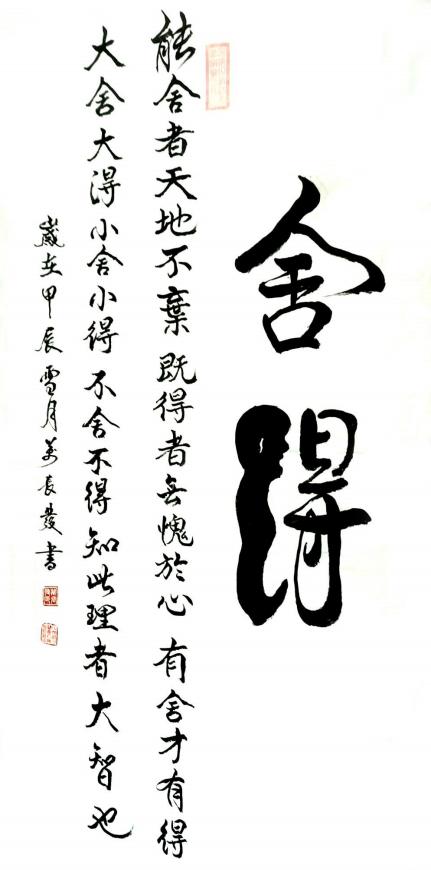 舍得
能舍者天地不棄既得者無愧於心有舍才有得
大舍大得小舍小得不舍不得知此理者大智也
歲在甲辰雪月姜長發書